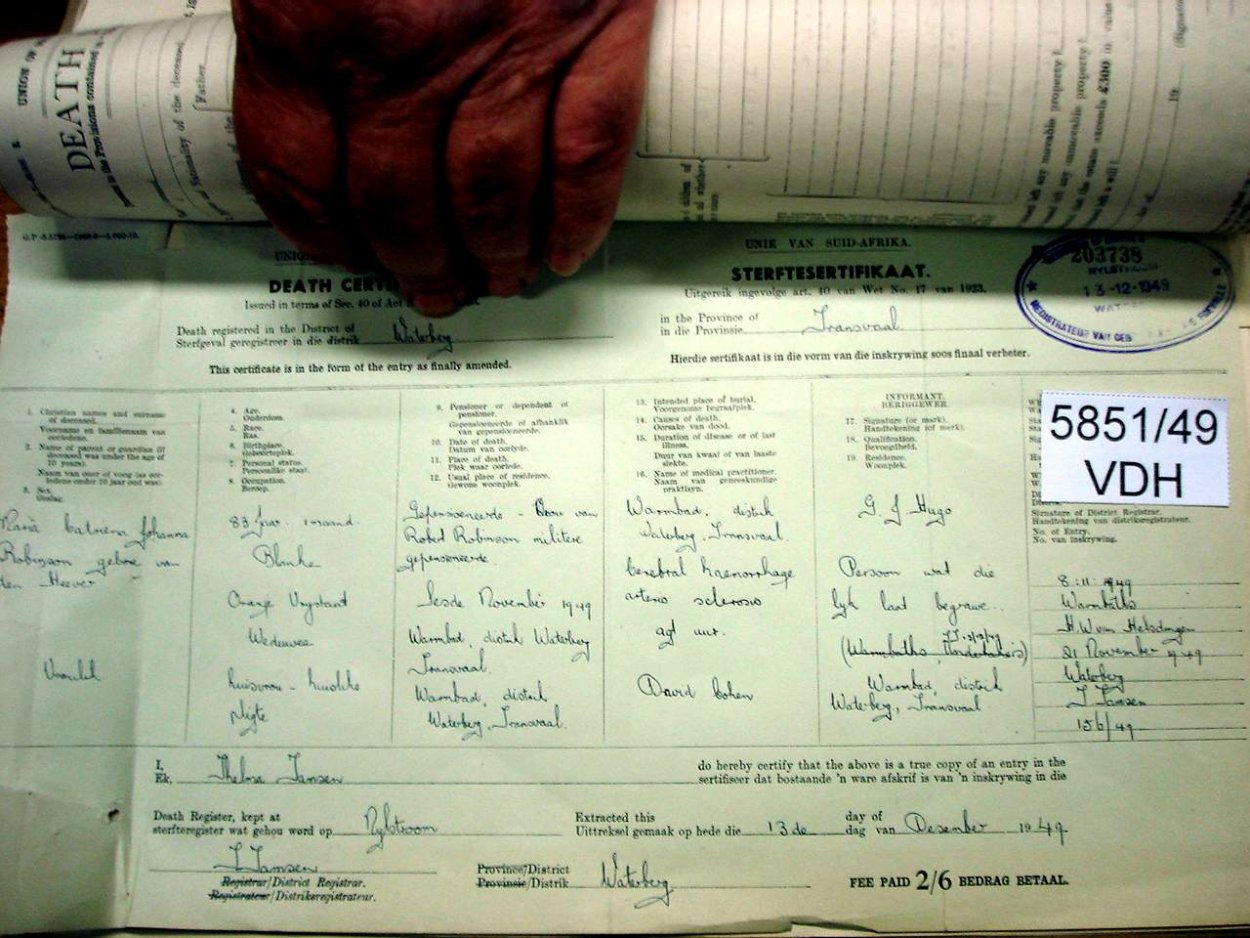 UNION OF
DEATH
in the Provisions contained in
Nationality of the deceased
Father,
left any movable property?
left any immovable property?
that the estate exceeds £300 in value
left a will?
19
UNIE VAN SUID-AFRIKA.
DEATH CERT
STERFTESERTIFIKAAT.
Issued in terms of Sec. 40 of Act
Uitgereik ingevolge art. 40 van Wet No. 17 van 1923.
203738
NYLSTROOM
13-12-1949
WAT
REGISTRATEUR VAN GEB
Death registered in the District of
Sterfgeval geregistreer in die distrik Waterberg
in the Province of
in die Provinsie Transvaal.
This certificate is in the form of the entry as finally amended.
Hierdie sertifikaat is in die vorm van die inskrywing soos finaal verbeter.
1. Christian names and surname of deceased.
Voorname en familienaam van oorledene.
2. Name of parent or guardian (if deceased was under the age of 10 years).
Naam van ouer of voog (as oorledene onder 10 jaar oud was).
3. Sex.
Geslag.
Maria Catriena Johanna
Robinson gebore van
den Heever
Vroulik
4. Age.
Ouderdom.
5. Race.
Ras.
6. Birthplace.
Geboorteplek.
7. Personal status.
Persoonlike staat.
8. Occupation.
Beroep.
83 jaar. 1 maand.
Blanke
Oranje Vrystaat
Weduwee
huisvrou - huislike
pligte
9. Pensioner or dependent of pensioner.
Gepensioeneerde of afhanklik van gepensioeneerde.
10. Date of death.
Datum van oorlede.
11. Place of death.
Plek waar oorlede.
12. Usual place of residence.
Gewone woonplek.
Gepensioeneerde - Vrou van
Robert Robinson militere
gepensioeneerde.
Sesde November 1949
Warmbad, distrik Waterberg
Transvaal.
Warmbad, distrik
Waterberg, Transvaal.
13. Intended place of burial.
Voorgenome begraafplek.
14. Causes of death.
Oorsake van dood.
15. Duration of disease or of last illness.
Duur van kwaal of van laaste siekte.
16. Name of medical practitioner.
Naam van geneeskundige praktisyn.
Warmbad, distrik
Waterberg, Transvaal.
Cerebral haemorrhage
arterio sclerosis
agt uur.
David Cohen
INFORMANT.
BERIGGEWER.
17. Signature (or mark).
Handtekening (of merk).
18. Qualification.
Bevoegdheid.
19. Residence.
Woonplek.
G. J Hugo
Persoon wat die
lyk laat begrawe..
(Warmbaths Undertakers)
Warmbad, distrik
Waterberg, Transvaal
5851/49
VDH
Signature of District Registrar.
Handtekening van distriksregistrateur.
No. of Entry.
No. van inskrywing.
8:11:1949
Warmbaths
H.W van Helsdingen
21 November 1949
Waterberg
T Jansen
156/49
I,
Ek, Thelma Jansen
do hereby certify that the above is a true copy of an entry in the
sertifiseer dat bostaande 'n ware afskrif is van 'n inskrywing in die
Death Register, kept at
sterfteregister wat gehou word op Nylstroom
Extracted this
Uittreksel gemaak op hede die 13de
day of
dag van Desember 1949
T Jansen
Registrar/District Registrar.
Registrateur/Distriksregistrateur.
Province/District
Provinsie/Distrik Waterberg
FEE PAID 2/6 BEDRAG BETAAL.